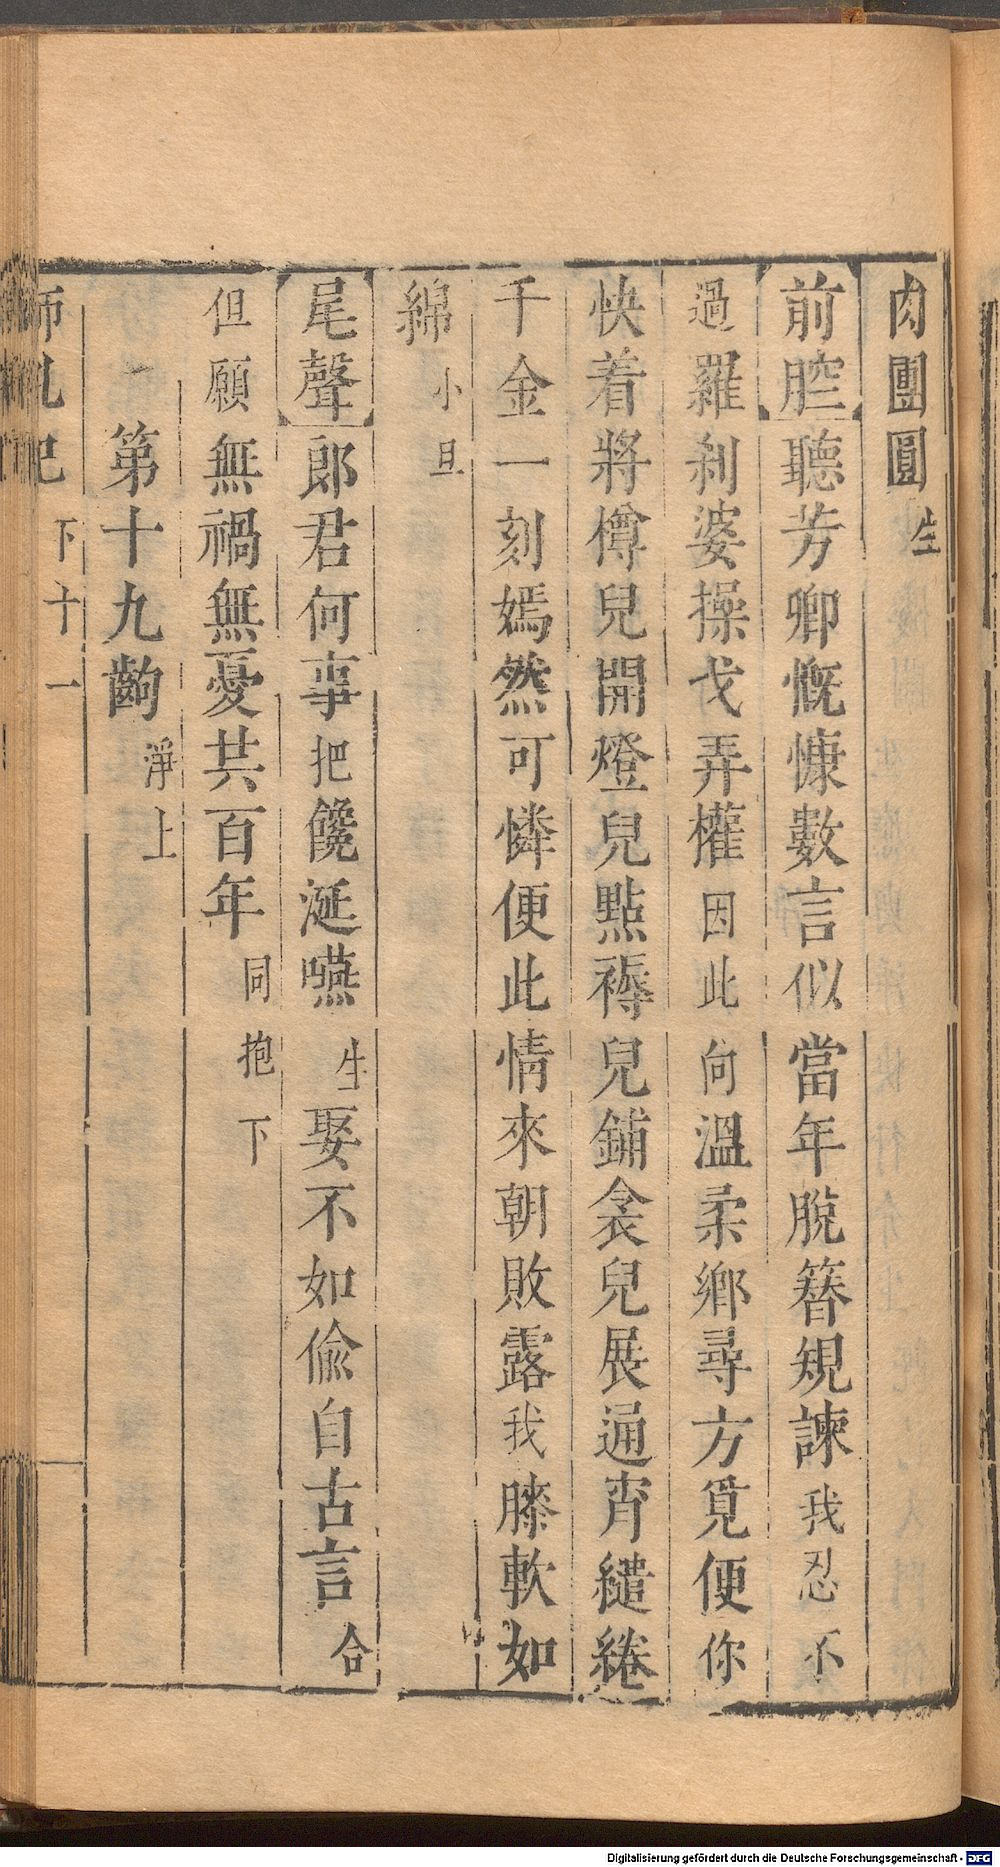 肉團圓生
前腔聽芳卿慨慷數言似當年脫簪規諫我忍不
過羅刹婆操戈弄權因此向溫柔鄉尋方覓便你
快着將樽兒開燈兒點褥兒鋪衾兒展通宵繾綣
千金一刻嫣然可憐便此情來朝敗露我膝軟如
綿小旦
尾聲郎君何事把饞涎嚥生娶不如偷自古言合
但願無禍無憂共百年同抱下
第十九齣淨上
下十一
Digitalisierung gefördert durch die Deutsche Forschungsgemeinschaft - DFG